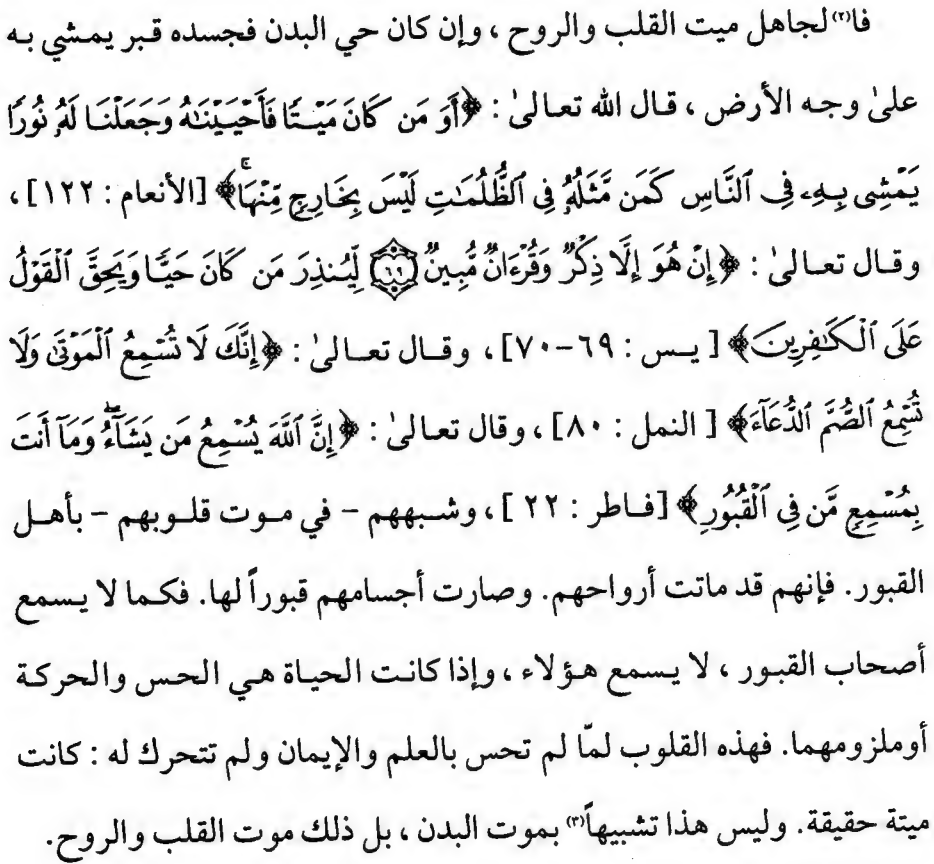 فا(٢)لجاهل ميت القلب والروح ، وإن كان حي البدن فجسده قبر يمشي به
علىٰ وجه الأرض ، قال الله تعالىٰ : ﴿أَوَ مَن كَانَ مَيْتًا فَأَحْيَيْنَٰهُ وَجَعَلْنَا لَهُۥ نُورًا
يَمْشِى بِهِۦ فِى ٱلنَّاسِ كَمَن مَّثَلُهُۥ فِى ٱلظُّلُمَٰتِ لَيْسَ بِخَارِجٍ مِّنْهَاۚ﴾ [الأنعام : ١٢٢] ،
وقال تعالىٰ : ﴿إِنْ هُوَ إِلَّا ذِكْرٌ وَقُرْءَانٌ مُّبِينٌ ٦٩ لِّيُنذِرَ مَن كَانَ حَيًّا وَيَحِقَّ ٱلْقَوْلُ
عَلَى ٱلْكَٰفِرِينَ﴾ [ يس : ٦٩-٧٠] ، وقال تعالىٰ : ﴿إِنَّكَ لَا تُسْمِعُ ٱلْمَوْتَىٰ وَلَا
تُسْمِعُ ٱلصُّمَّ ٱلدُّعَآءَ﴾ [ النمل : ٨٠] ، وقال تعالىٰ : ﴿إِنَّ ٱللَّهَ يُسْمِعُ مَن يَشَآءُۖ وَمَآ أَنتَ
بِمُسْمِعٍ مَّن فِى ٱلْقُبُورِ﴾ [فاطر : ٢٢ ] ، وشبههم – في موت قلوبهم – بأهل
القبور. فإنهم قد ماتت أرواحهم. وصارت أجسامهم قبوراً لها. فكما لا يسمع
أصحاب القبور ، لا يسمع هؤلاء ، وإذا كانت الحياة هي الحس والحركة
أوملزومهما. فهذه القلوب لمّا لم تحس بالعلم والإيمان ولم تتحرك له : كانت
ميتة حقيقة. وليس هذا تشبيهاً(٣) بموت البدن ، بل ذلك موت القلب والروح.